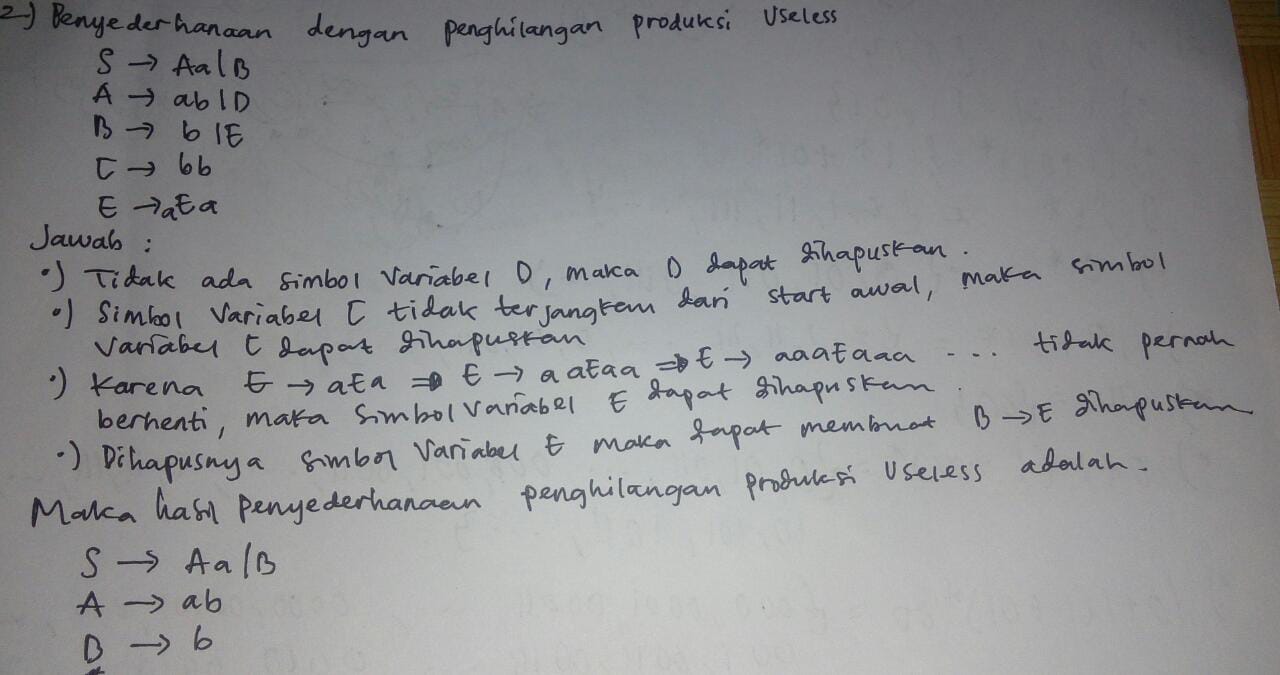 2-) Penyederhanaan dengan penghilangan produksi Useless
S → Aa|B
A → ab|D
B → b|E
C → bb
E → aEa
Jawab :
•) Tidak ada simbol variabel D, maka D dapat dihapuskan.
•) Simbol Variabel C tidak terjangkau dari start awal, maka simbol
variabel C dapat dihapuskan
•) Karena E → aEa ⇒ E → aaEaa ⇒ E → aaaEaaa ... tidak pernah
berhenti, maka simbol variabel E dapat dihapuskan.
•) Dihapusnya simbol Variabel E maka dapat membuat B → E dihapuskan
Maka hasil Penyederhanaan penghilangan produksi Useless adalah.
S → Aa|B
A → ab
B → b